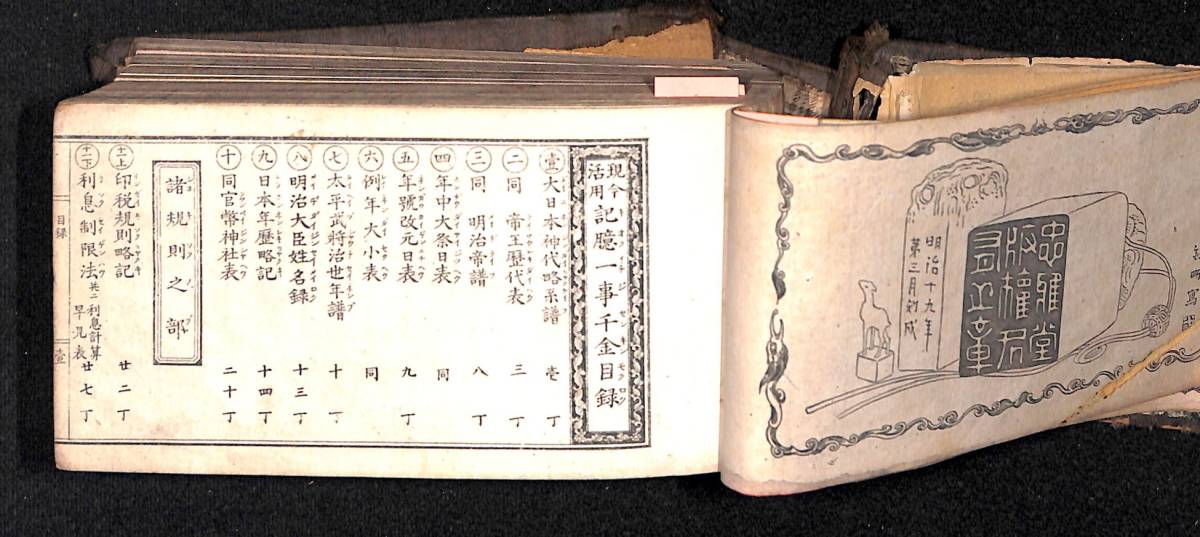 忠雅堂
版權所
有之章
明治十九年
第三月刻成
現今活用記臆一事千金目録
壹 大日本神代略系譜 壱丁
二 同 帝王歴代表 三丁
三 同 明治帝譜 八丁
四 年中大祭日表 同
五 年號改元日表 九丁
六 例年大小表 同
七 太平武將治世年譜 十丁
八 明治大臣姓名録 十三丁
九 日本年歴略記 十四丁
十 同官幣神社表 二十丁
諸規則之部
十一上 印税規則略記 廿二丁
十一下 利息制限法 共ニ利息計算早見表 廿七丁
目録 壹